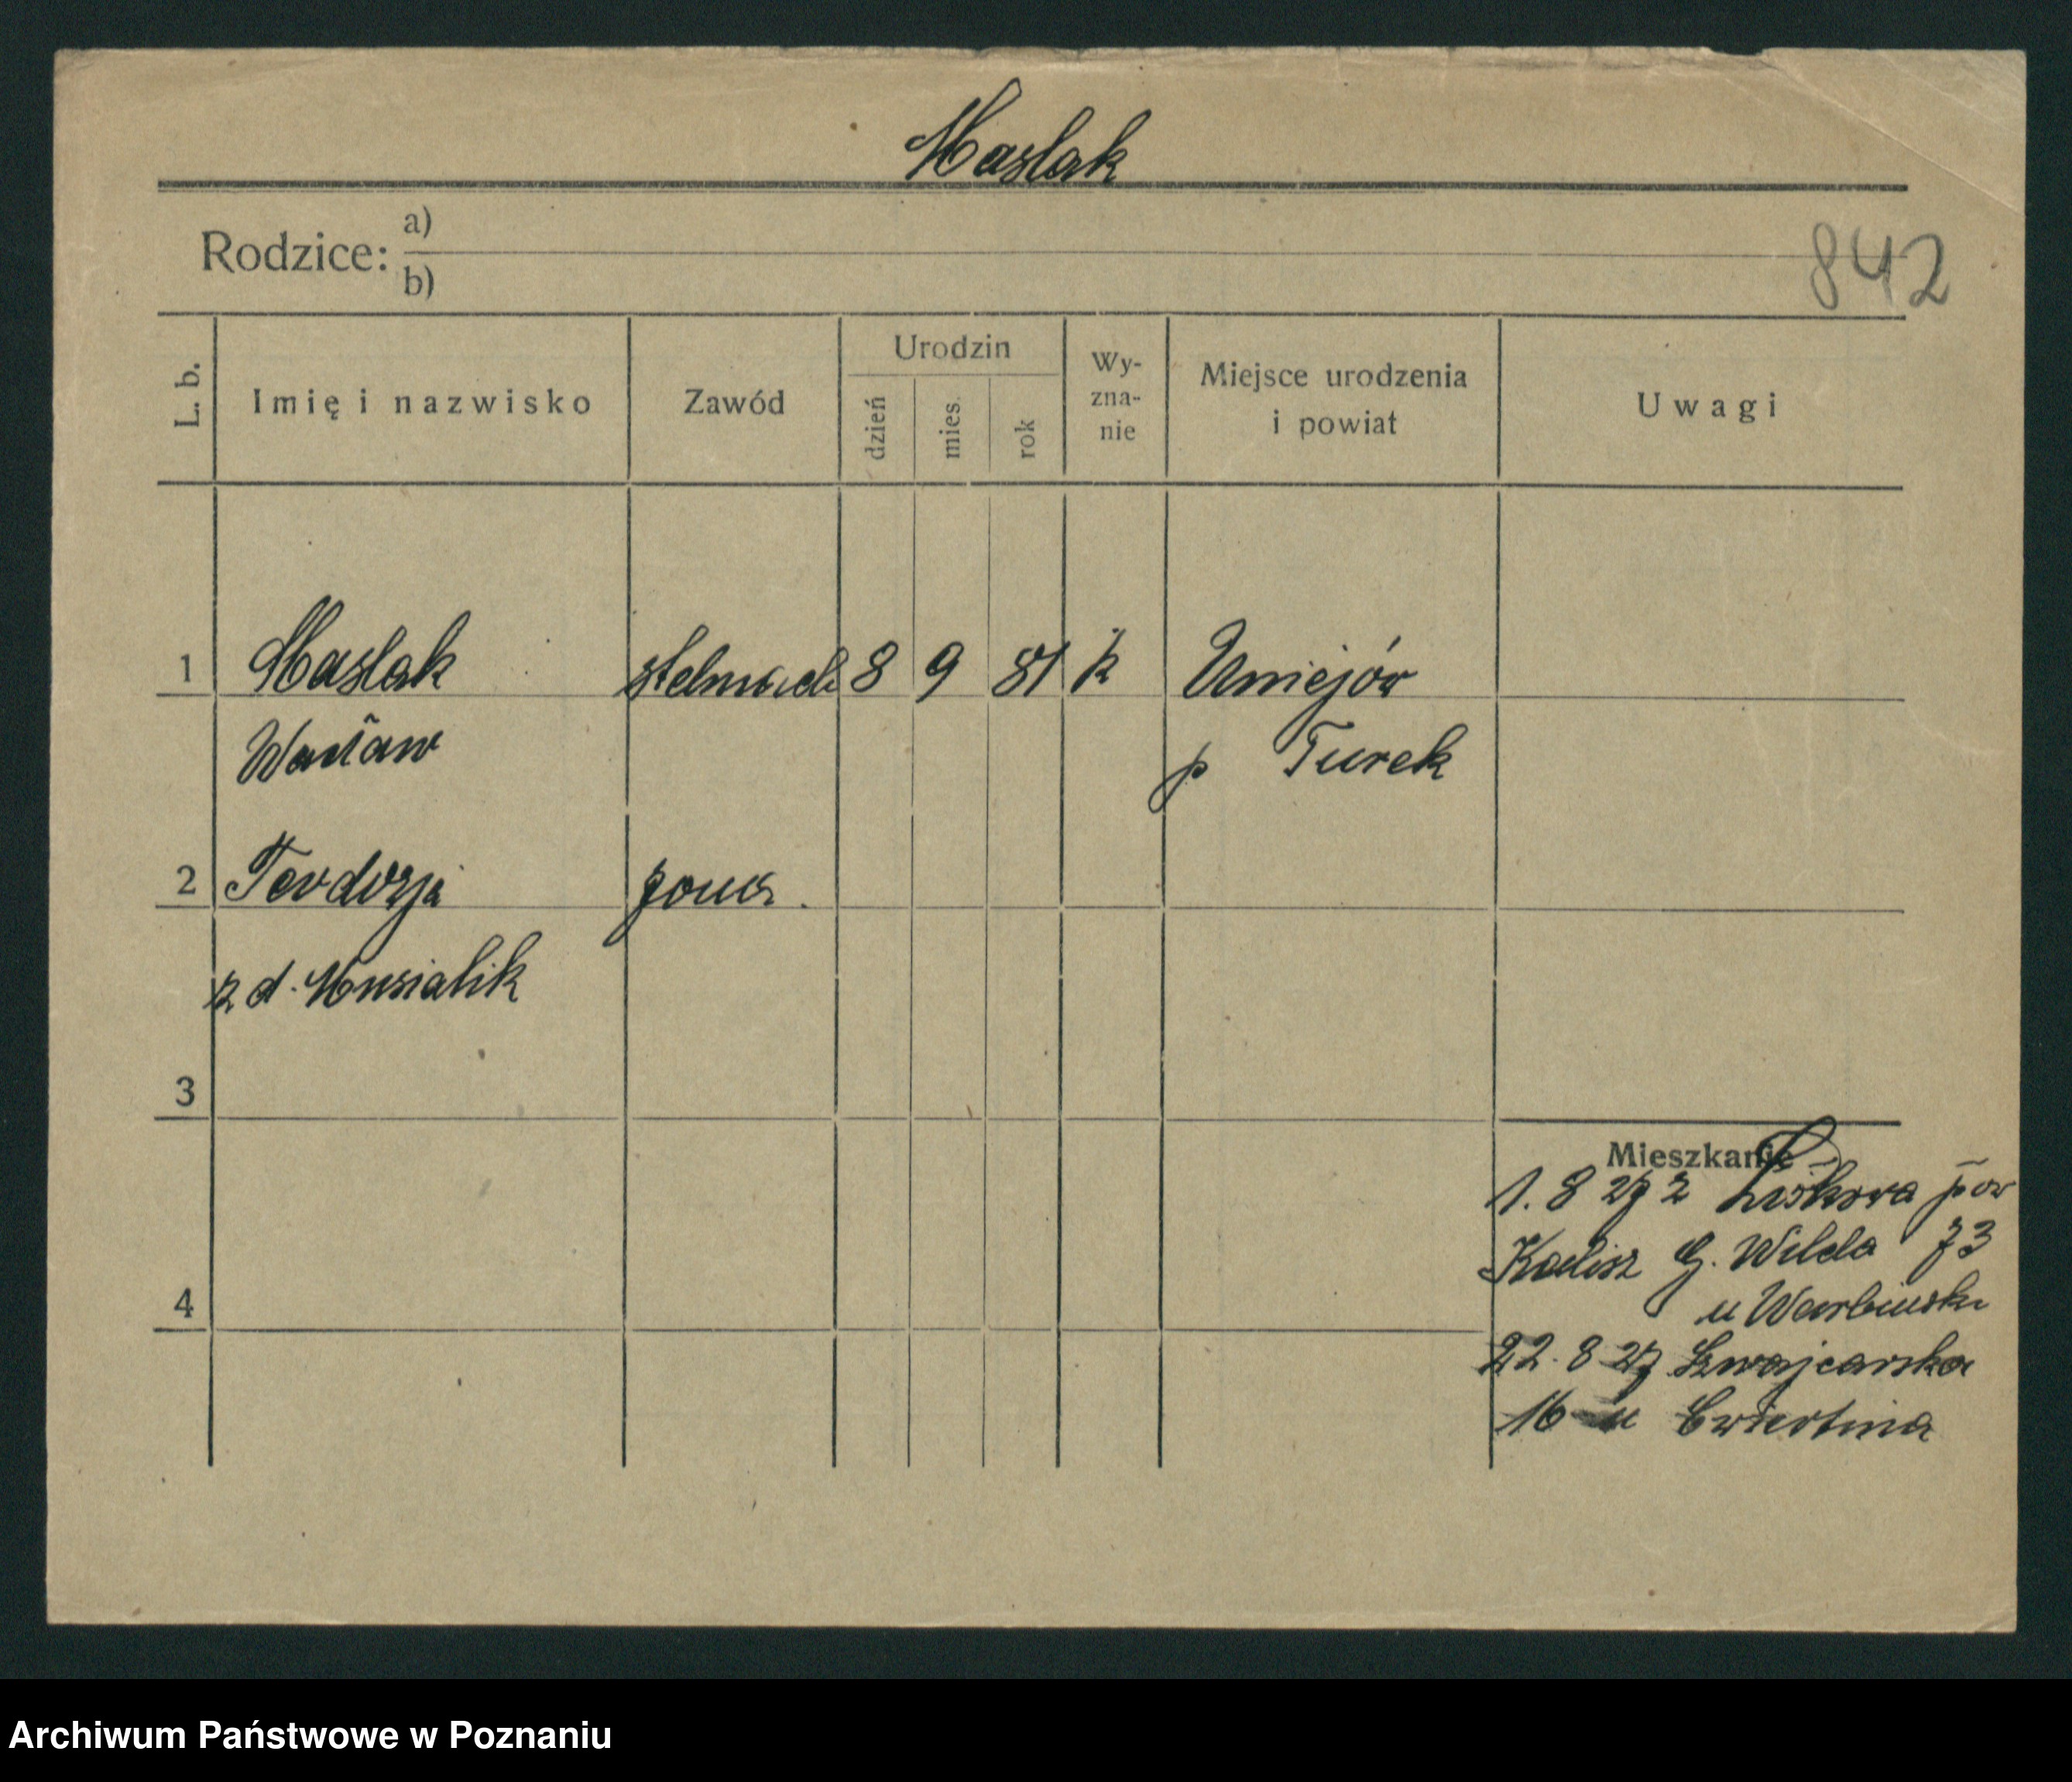 Maslak
Rodzice: a)
b)
842
L. b.
Imię i nazwisko
Zawód
Urodzin
dzień
mies.
rok
Wy-
zna-
nie
Miejsce urodzenia
i powiat
Uwagi
1 Maslak stelmach 8 9 81 k Uniejów
Wacław p Turek
2 Teodozja żona.
z d. Musialik
3
Mieszkanie
1. 8 27 z Liskowa pow
Kalisz G. Wilda 73
4
u Warbinski
22. 8 27 Szwajcarska
16 u Cwiertnia
Archiwum Państwowe w Poznaniu